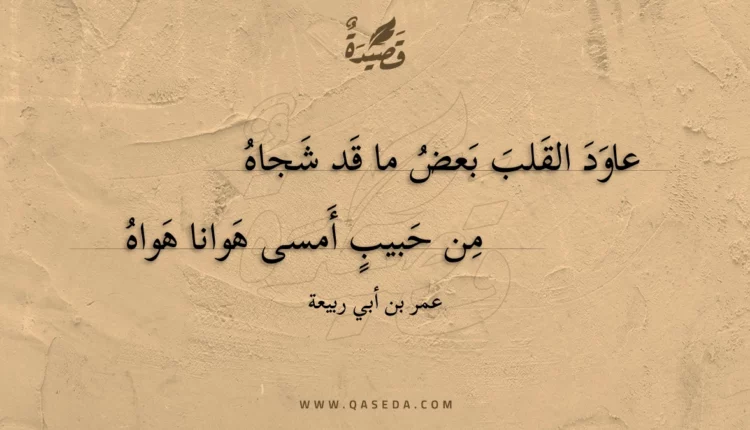 قَصِيْدَةٌ
عاوَدَ القَلبَ بَعضُ ما قَد شَجاهُ
مِن حَبيبٍ أَمسى هَوانا هَواهُ
عمر بن أبي ربيعة
WWW.QASEDA.COM